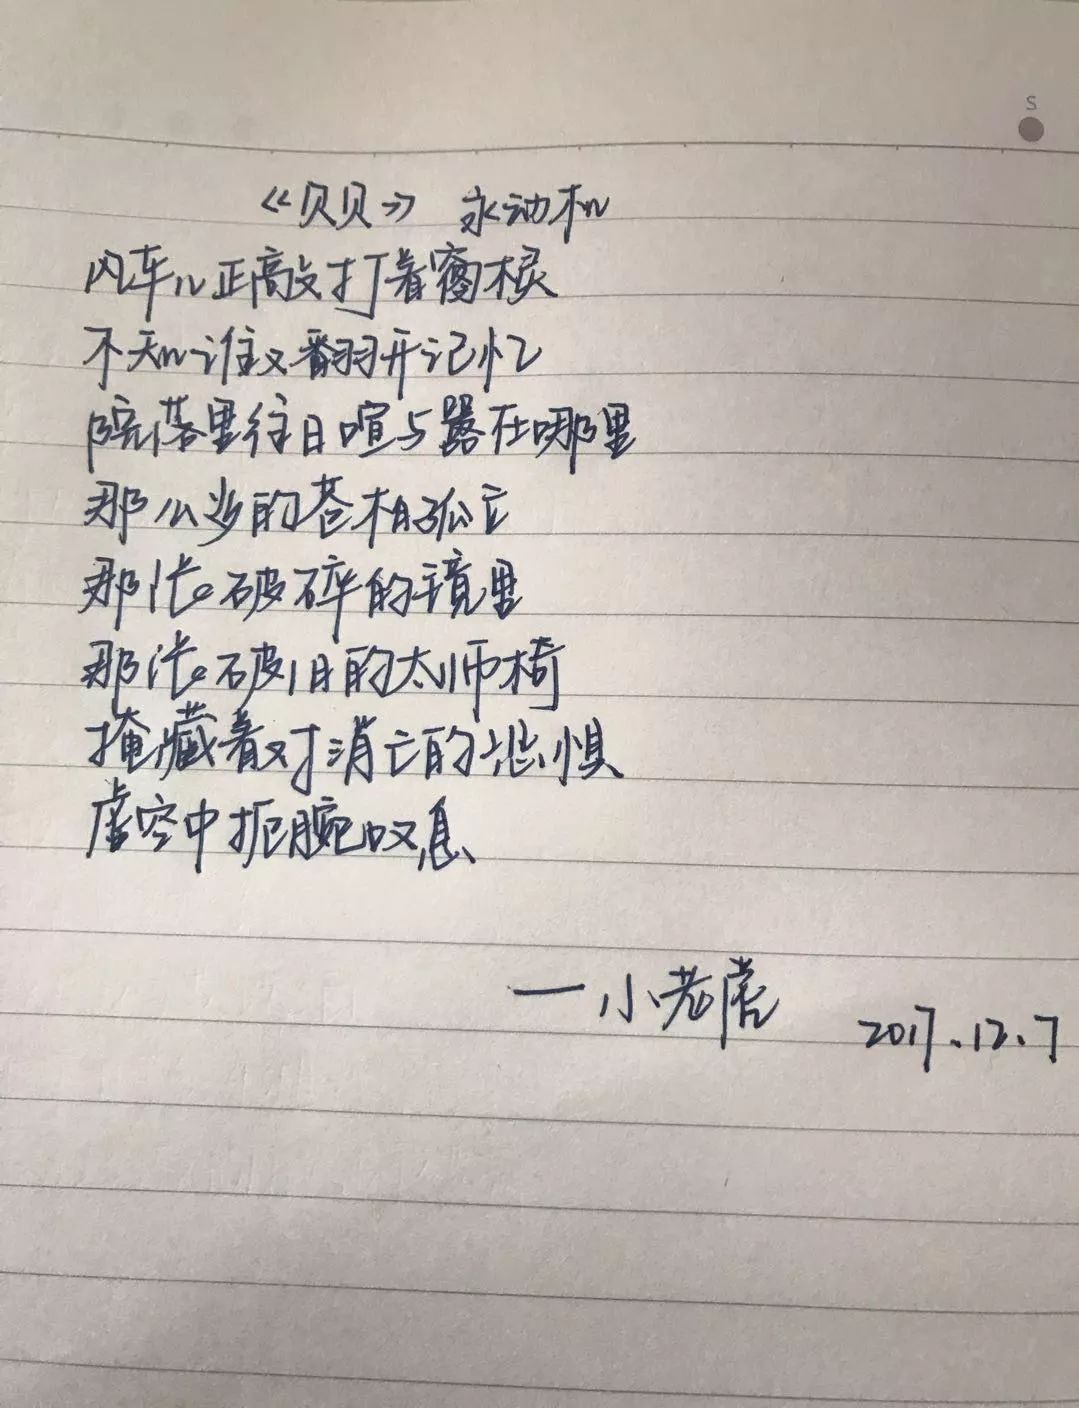 S
《贝贝》 永动机
风车儿正敲打着窗棂
不知谁又翻开记忆
院落里往日喧与嚣在哪里
那么少的苍柏孤立
那张破碎的镜里
那张破旧的太师椅
掩藏着对消亡的恐惧
虚空中扼腕叹息
一小老虎
2017.12.7